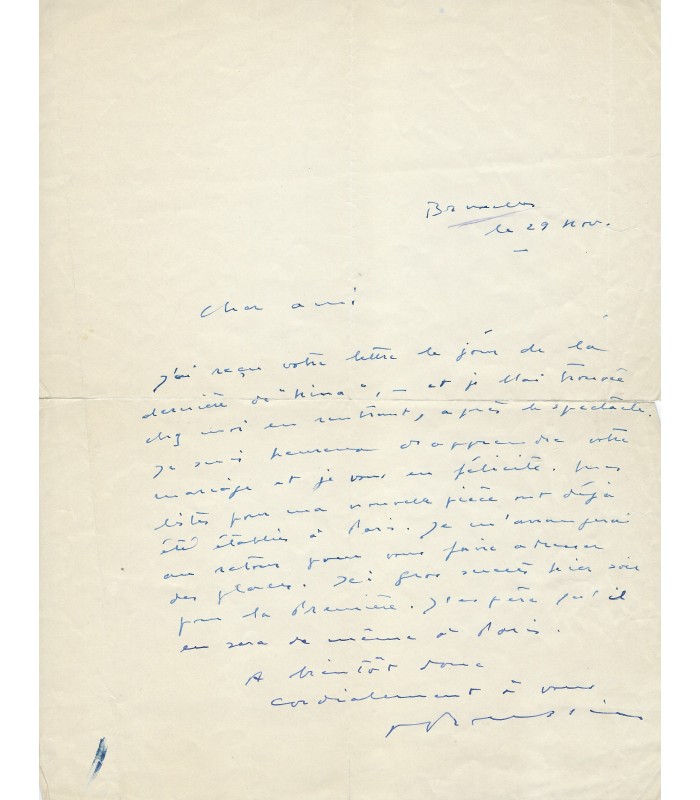 Bruxelles
le 29 Nov.
Cher ami
J'ai reçu votre lettre le jour de la
dernière de "Nina", – et je l'ai trouvée
chez moi en rentrant, après le spectacle.
Je suis heureux d'apprendre votre
mariage et je vous en félicite. Mes
listes pour ma nouvelle pièce ont déjà
été établies à Paris. Je m'arrangerai
au retour pour vous faire adresser
des places. Ici gros succès hier soir
pour la Première. J'espère qu'il
en sera de même à Paris.
A bientôt donc
Cordialement à vous